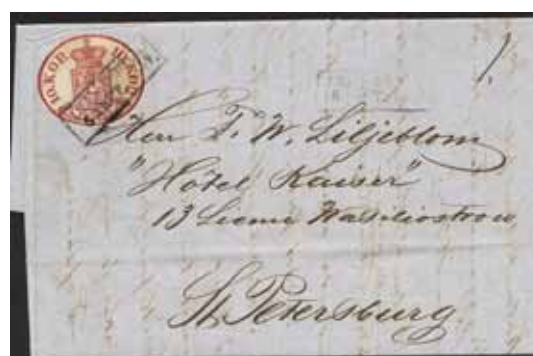 10.KOP. 10.KOP.
Herr F. W. Liljeblom
"Hôtel Kaiser"
13 Lienie Wassiliostrow
St. Petersburg